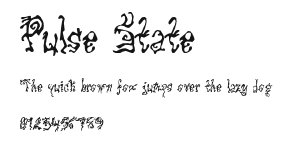 Pulse State
The quick brown fox jumps over the lazy dog
0123456789